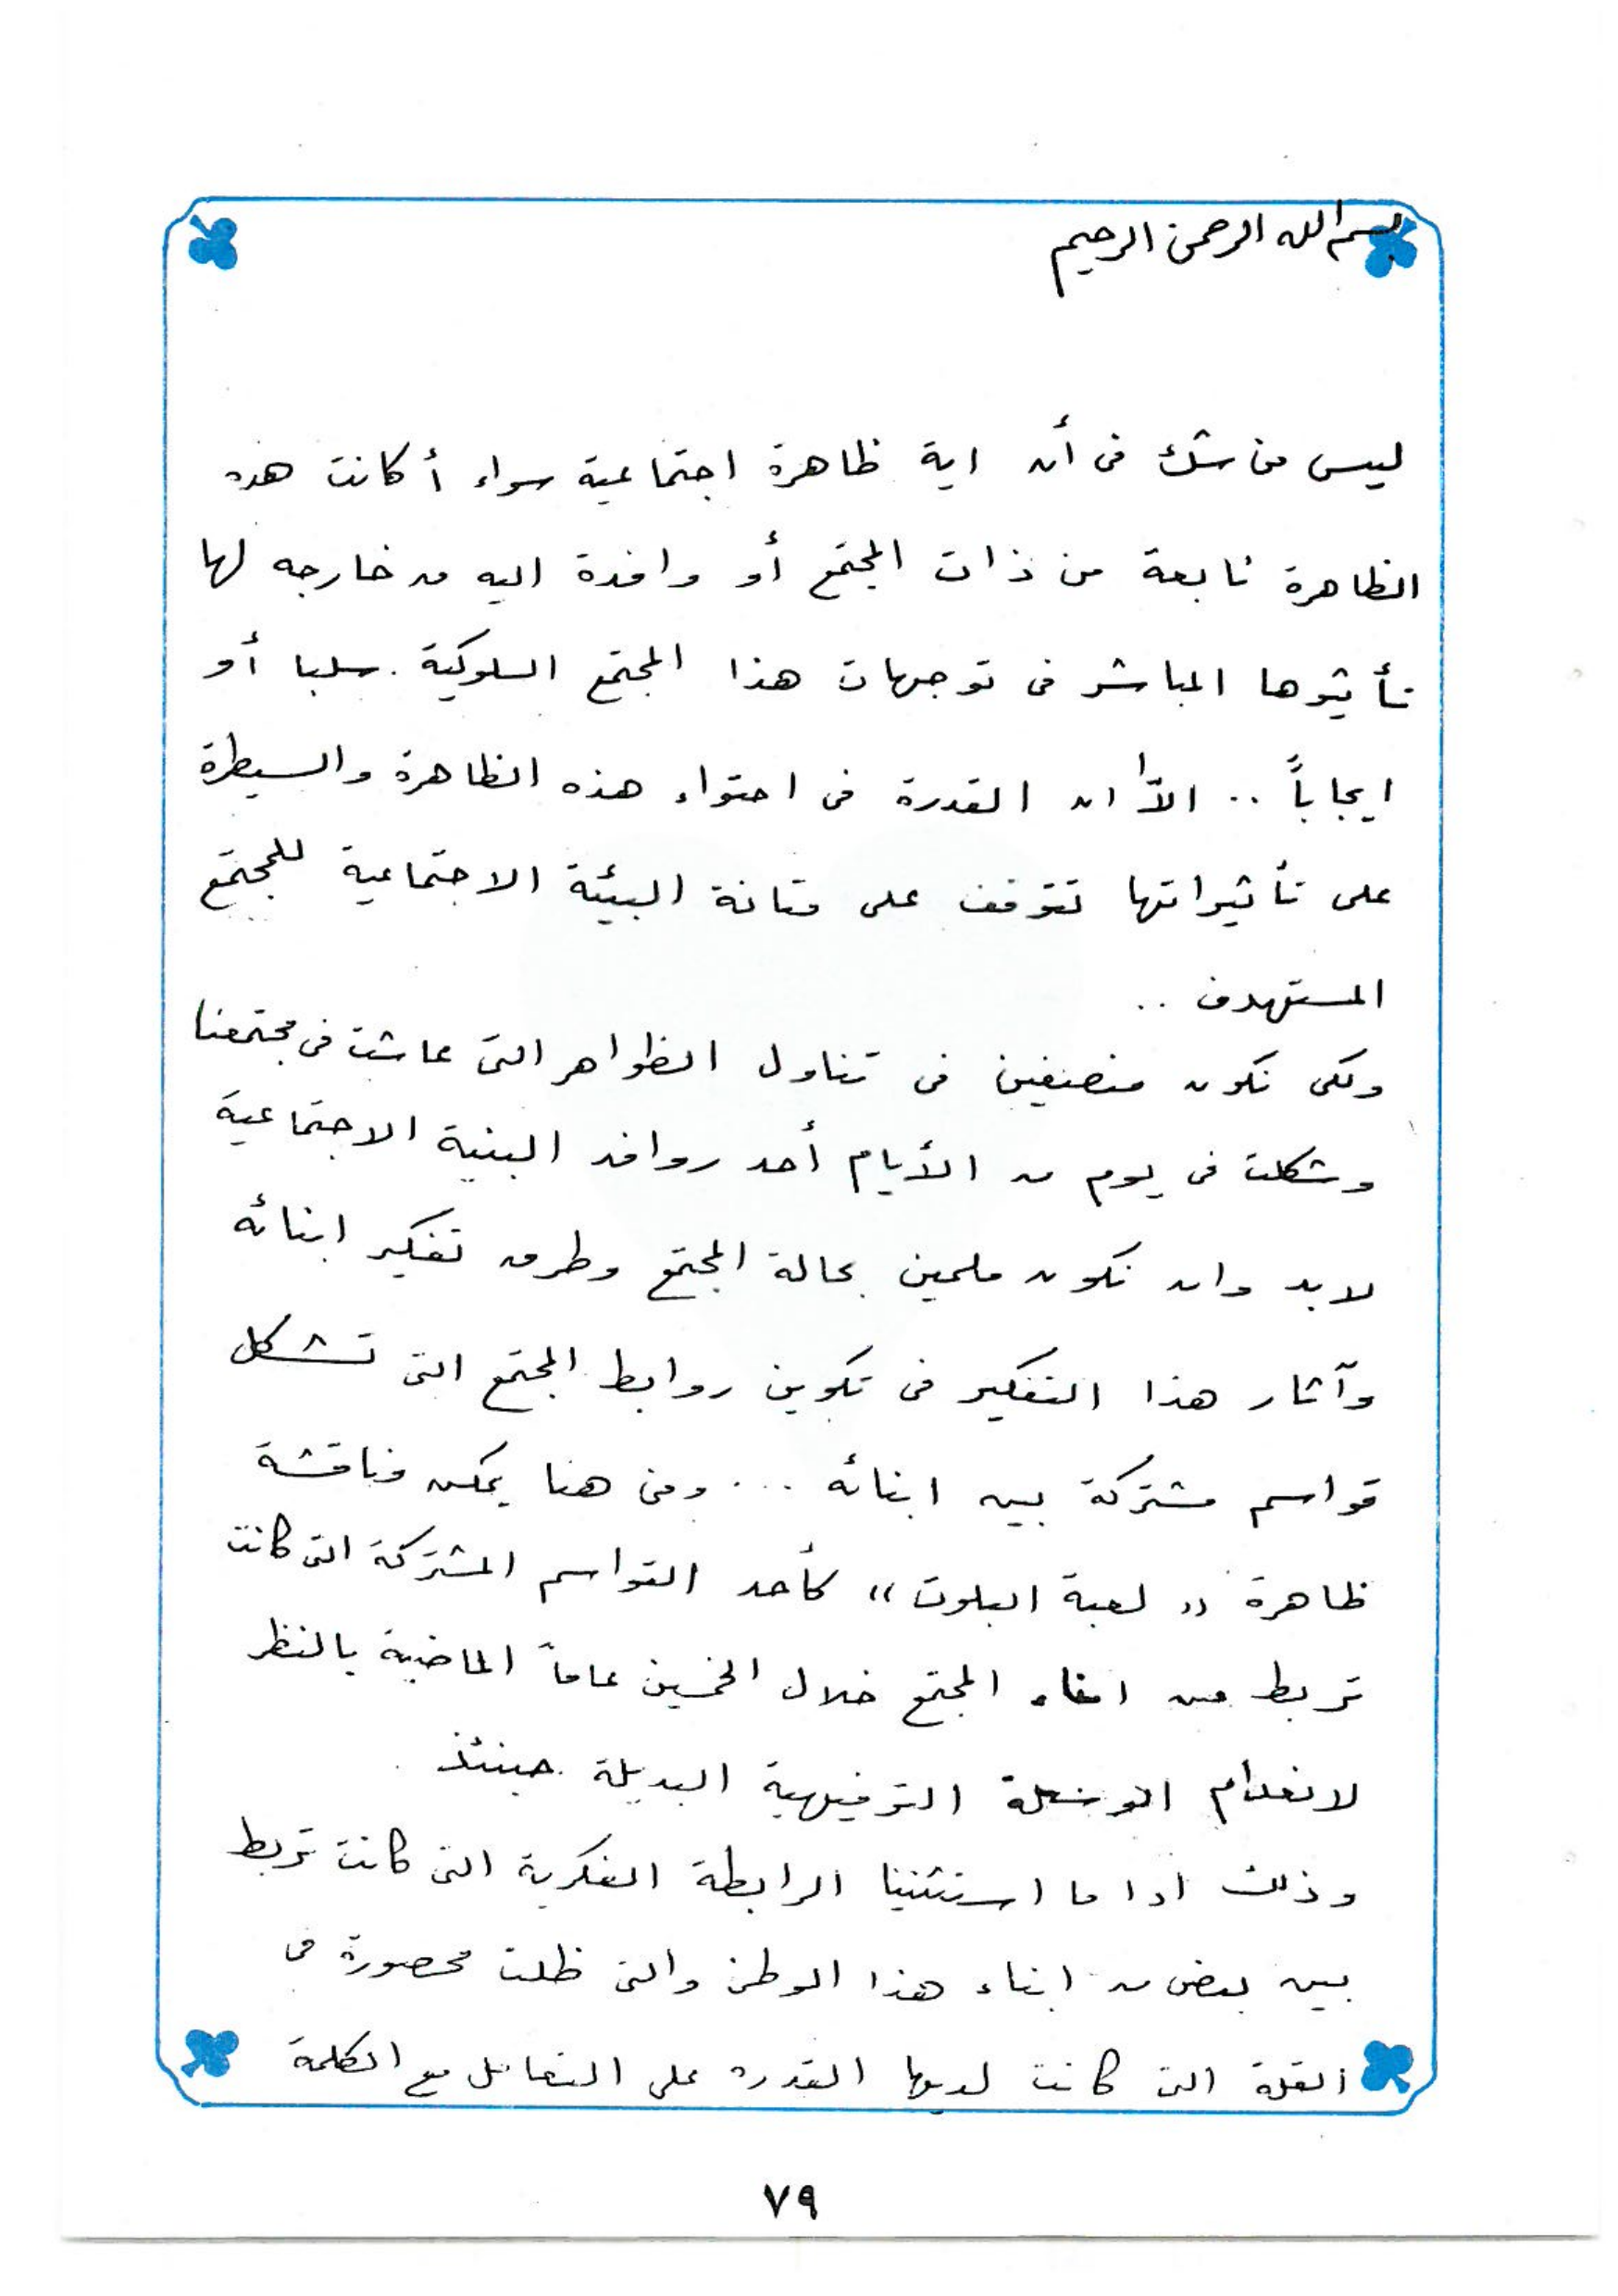 بسم الله الرحمن الرحيم
ليس من شك فى أن اية ظاهرة اجتماعية سواء أكانت هذه
الظاهرة نابعة من ذات المجتمع أو وافدة اليه من خارجه لها
تأثيرها المباشر فى توجهات هذا المجتمع السلوكية . سلبا أو
ايجاباً .. الاّ ان القدرة فى احتواء هذه الظاهرة والسيطرة
على تأثيراتها تتوقف على متانة البيئة الاجتماعية للمجتمع
المستهدف ..
ولكى نكون منصفين فى تناول الظواهر التى عاشت فى مجتمعنا
وشكلت فى يوم من الأيام أحد روافد البنية الاجتماعية
لابد وان نكون ملمين بحالة المجتمع وطرق تفكير ابنائه
وآثار هذا التفكير فى تكوين روابط المجتمع التى تشكل
قواسم مشتركة بين ابنائه ... ومن هنا يمكن مناقشة
ظاهرة " لعبة البلوت " كأحد القواسم المشتركة التى كانت
تربط بين ابناء المجتمع خلال الخمسين عاماً الماضية بالنظر
لانعدام الوسيلة الترفيهية البديلة حينئذ .
وذلك اذا ما استثنينا الرابطة الفكرية التى كانت تربط
بين بعض من ابناء هذا الوطن والتى ظلت محصورة فى
القلة التى كانت لديها القدره على التعامل مع الكلمة
٧٩